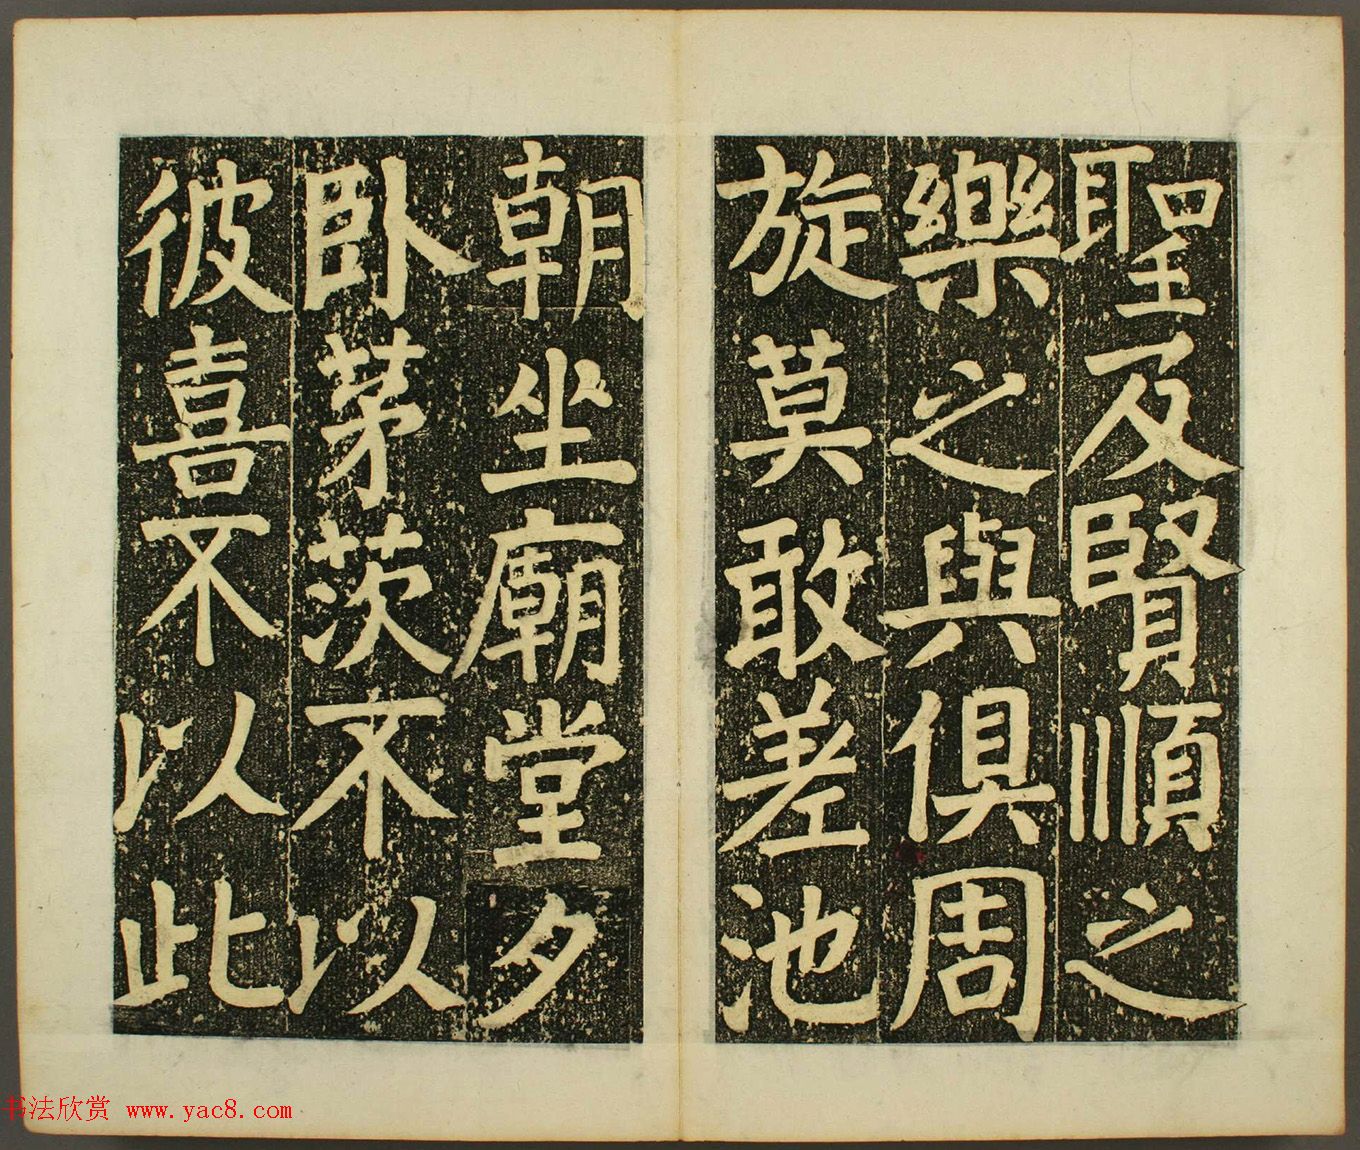 聖及賢順之
樂之與俱周
旋莫敢差池
朝坐廟堂夕
卧茅茨不以
彼喜不以此
书法欣赏 www.yac8.com